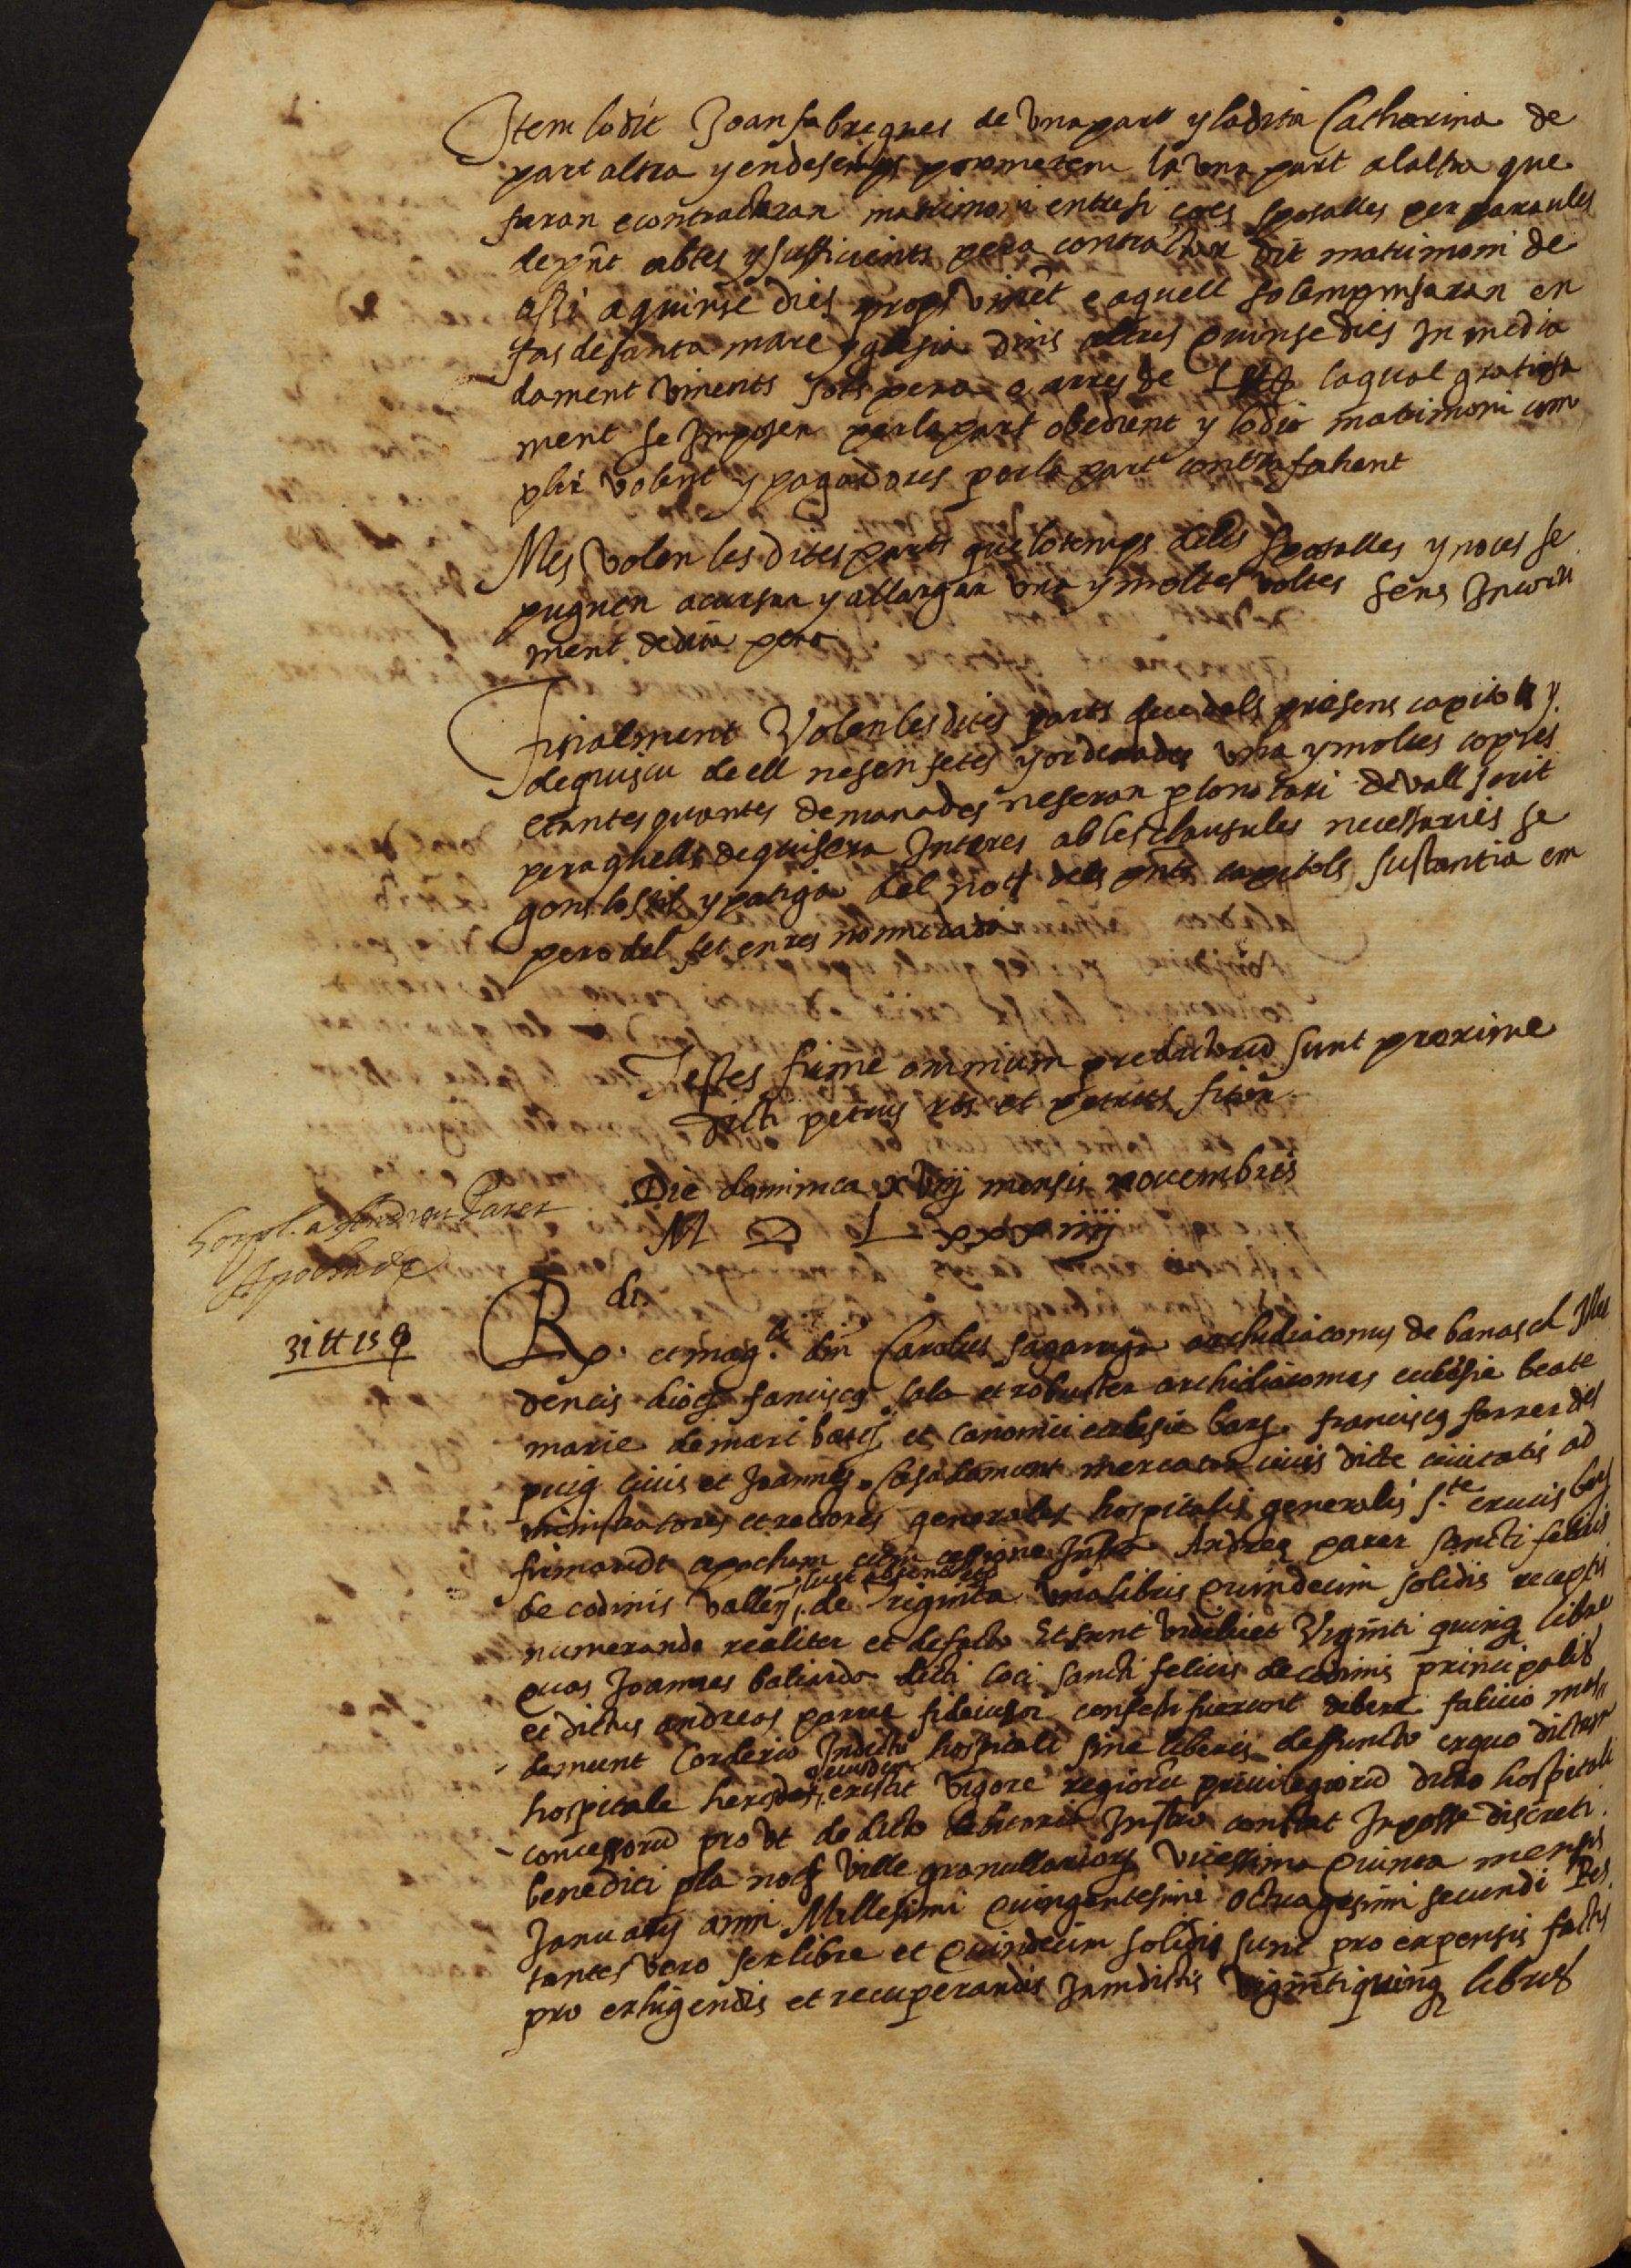 Item lo dit Joan fabregues de una part y la dita Catharina de
part altra y endesemps prometem la una part a laltra que
faran e contractaran matrimoni entre si e o es sposalles per paraules
de pñt abtes y sufficients pera contractar dit matrimoni de
assi a quinse dies prop vinēt e aquell solempnisaran en
fas de santa mare yglesia dins altres quinse dies In media
dament vinents sots pena e arres de la qual gratiosa
ment se Imposen per la part obedient y lo dit matrimoni com
plir volent y pagadores per la part contrafahent
Mes volen les dites parts que lo temps deles sposalles y noces se
puguen acursar y allargar una y moltes voltes sens Incorri
ment de dita pena
Finalment Volen les dites parts que dels presens capitols y
de quiscu de ell ne sen fetes y ordenades una y moltes copies
e tantes quantes demanades ne seran p lo notari devall scrit
per aquells de qui sera Interes ab les clausules necessaries se
gons lo stil y pratiga del not dels pnts capitols sustantia em
pero del fet en res no mudada
Testes firme omnium predictorũ sunt proxime
dicti petrus ros et petrus
Die dominica xviij mensis novembris
M D L xxxiiij
a Andreu Parer
Apocha de
31 ℔ 15 ß
R.di
et mag.ci dñi Carolus sagarriga archidiaconus de banasch Iller
dencis dioc̃ franciscq sola et robuster archidiaconus ecclesie beate
marie de mari barc̃ et canonici ecclesie barc̃ franciscq ferrer des
puig civis et Joannes Casadamunt mercator civis dicte civitatis ad
ministratores et rectores generales hospitalis generalis s.te crucis barc̃
firmarunt apocham cum cessione Andreę parer sancti felicis
licet absenti etc
de codinis vallen̄, de triginta una libris quindecim solidis receptis
numerando realiter et de facto Et sunt videlicet Viginti quinq libre
quas Joannes baliarda dicti loci sancti felicis de codinis principalis
et dictus andreas parer fideiussor confessi fuerunt debere
demunt Corderio In dicto hospitali sine liberis deffuncto ex quo dictum
eiusdem
hospitale heredes, existit vigore regiorũ privilegiorũ dicto hospitali
concessorũ pro ut de dicto debitorio Instro constat In posse discreti
benedicti pla not ville granullariorȝ vicessima quinta mensis
Januarij anni Millesimi quingentesimi octuagesimi secundi Res
tantes vero sex libre et quindecim solidis sunt pro expensis factis
pro exhigendis et recuperandis Jamdictis viginti quinq libris